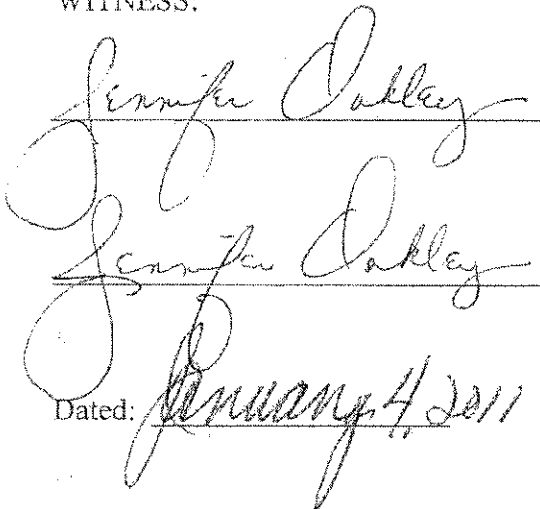 WITNESS:
Jennifer Oakley
Jennifer Oakley
Dated: January 4, 2011